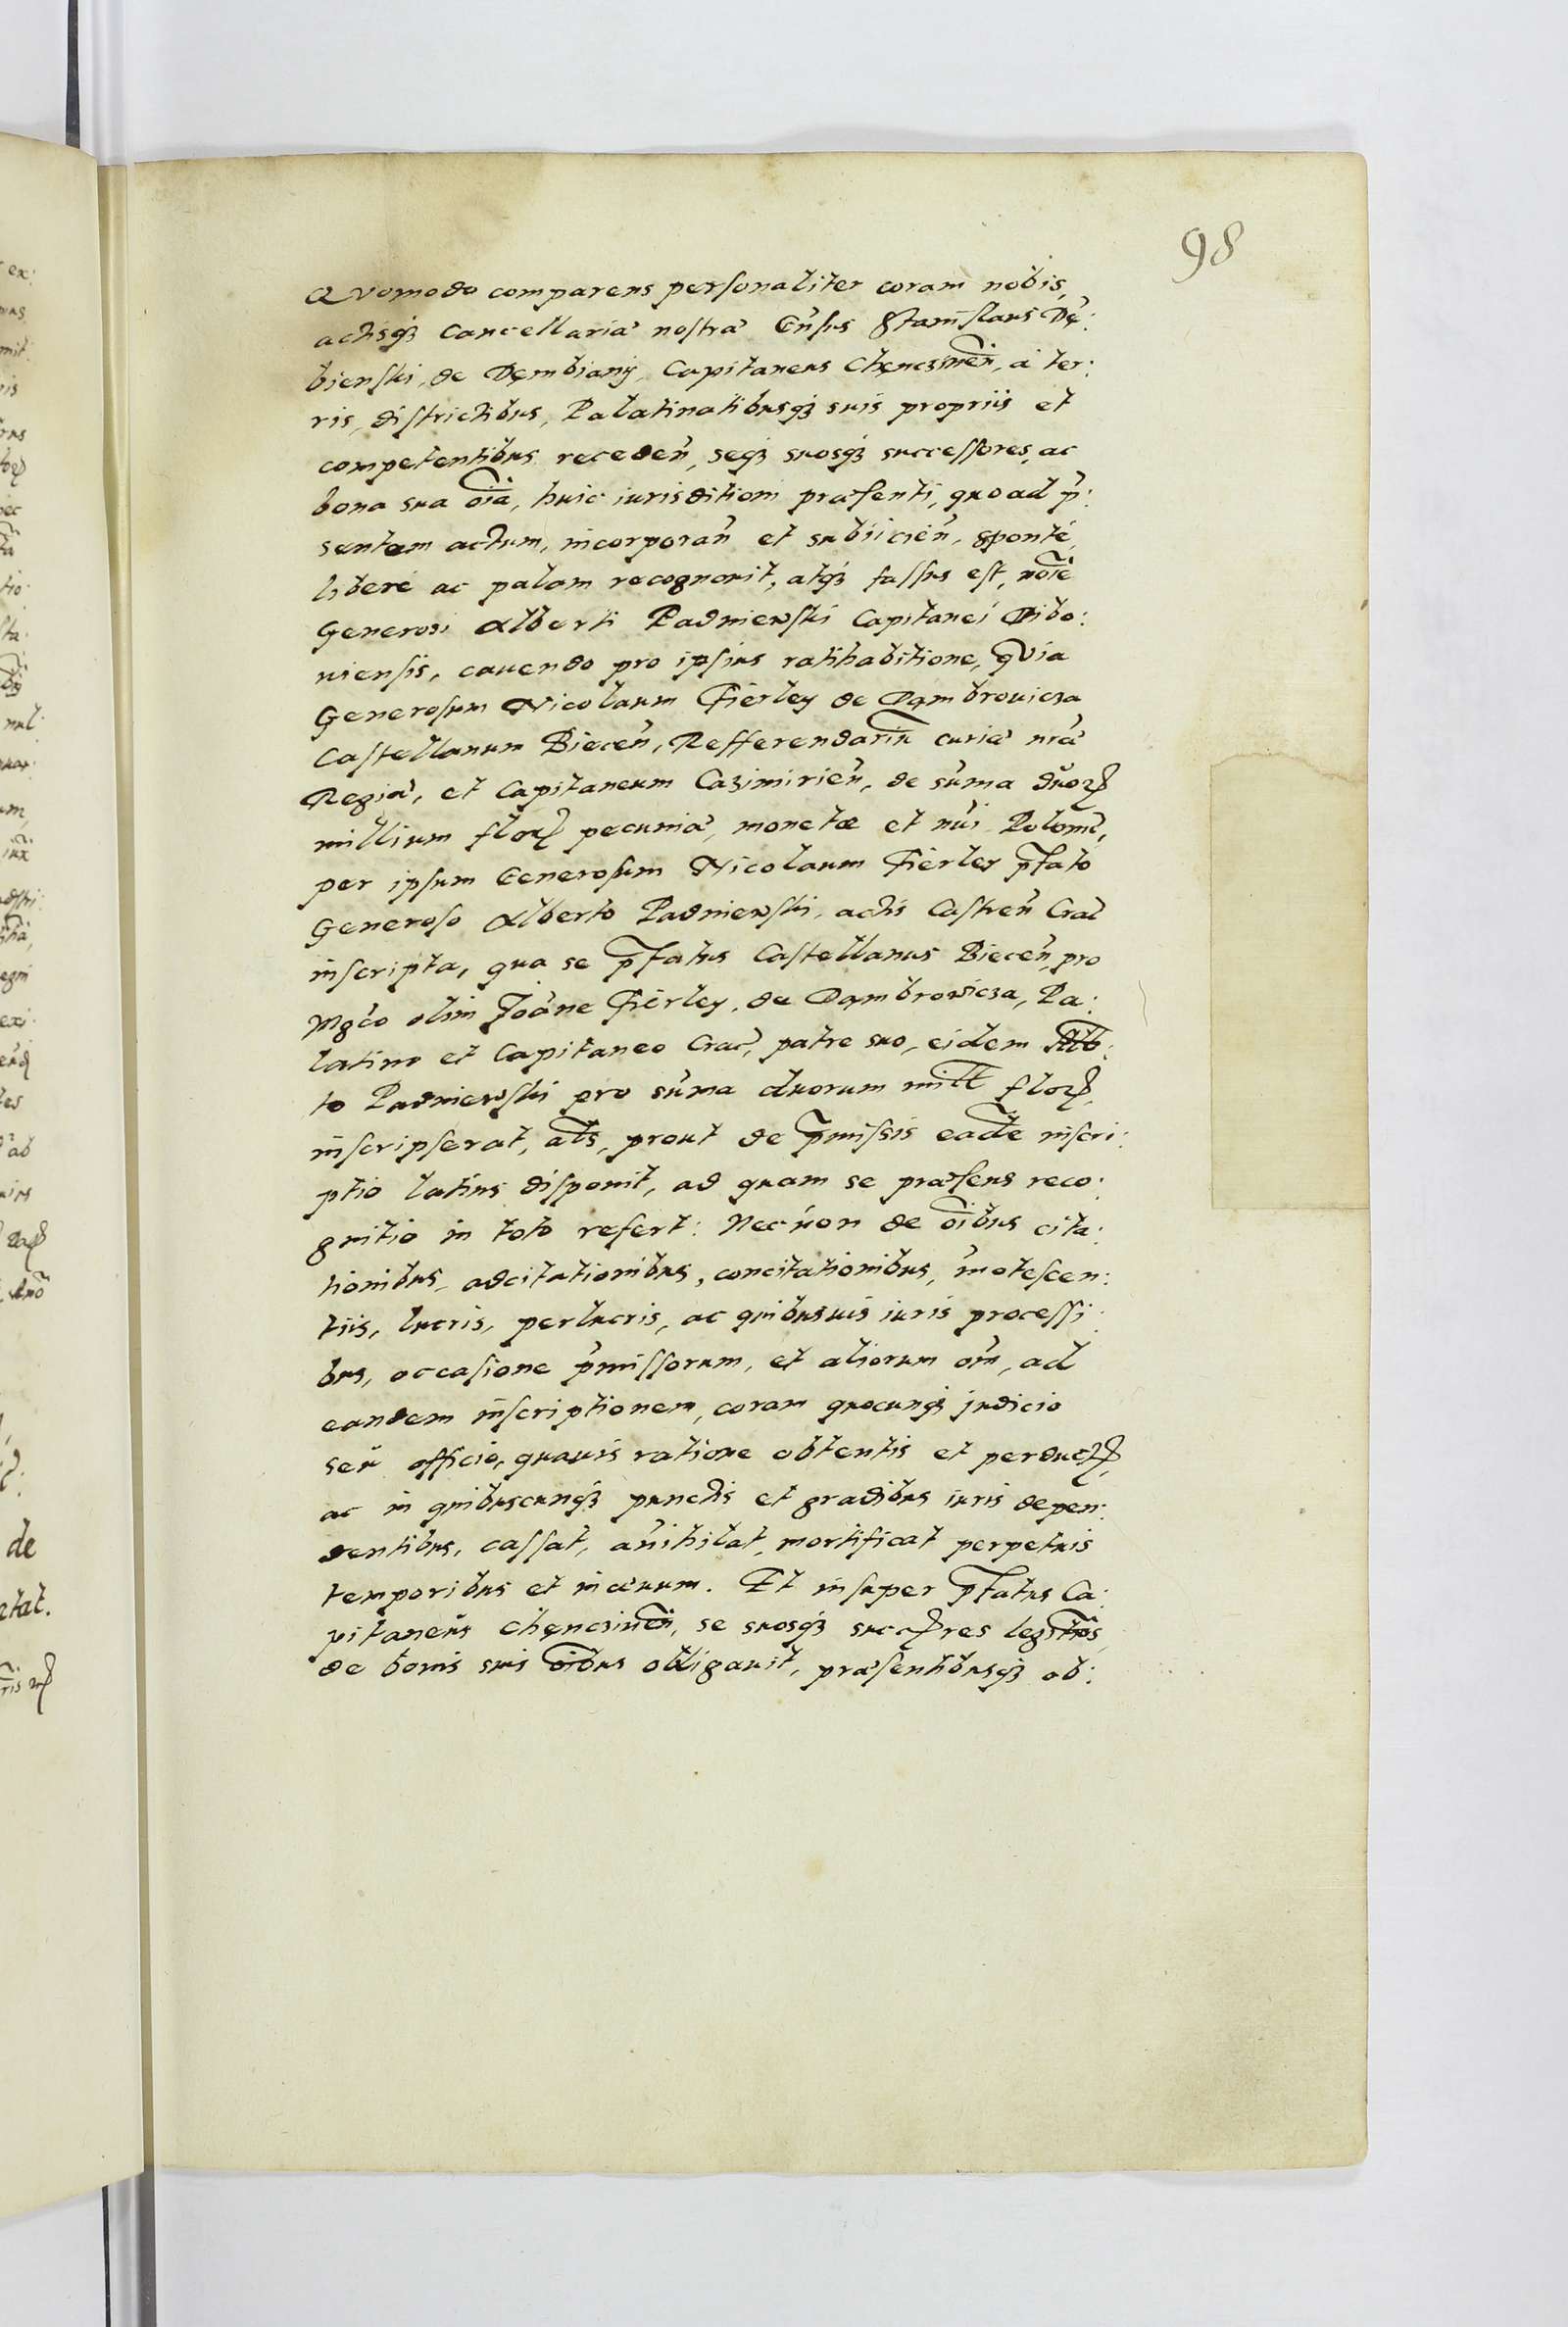 98
Quomodo comparens personaliter coram nobis,
actisq3 Cancellariæ nostræ Gn̄sus Stanislaus Dę:
bienski, de Dęmbiany, Capitaneus Chęnczinen̄, á ter:
ris, districtibus, Palatinatibusq3 suis propriis et
competentibus receden̄, seq3 suosq3 successores, ac
bona sua oīa, huic iurisditioni præsenti, quo ad p̄:
sentem actum, incorporan̄ et subiicien̄, sponté,
liberé ac palam recognouit, atq3 fassus est, noīe
Generosi Alberti Padniewski Capitanei Dibo:
uiensis, cauendo pro ipsius ratihabitione, Quia
Generosum Nicolaum Fierley de Dąmbrouicza
Castellanum Biecen̄, Refferendariū curiæ nr̄æ
Regiæ, et Capitaneum Cazimirien̄, de sum̄a duoꝝ
millium floꝝ pecuniæ, monetæ et nūi Polon̄,
per ipsum Generosum Nicolaum Fierley p̄fato
Generoso Alberto Padniewski, actis Castren̄ Crac̄
inscripta, qua se p̄fatus Castellanus Biecen̄, pro
Mgc̄o olim Joan̄e Fierley, de Dąmbrowicza, Pa:
latino et Capitaneo Crac̄, patre suo, eidem Alb:
to Padniewski pro sum̄a duorum mill̄ floꝝ,
inscripserat, al̄s, prout de p̄missis eadē inscri:
ptio latius disponit, ad quam se præsens reco:
gnitio in toto refert: Nec non de oībus cita:
tionibus, adcitationibus, concitationibus, in̄otescen:
tiis, lucris, perlucris, ac quibusuis iuris processi:
bus, occasione p̄missorum, et aliorum om̄, ad
eandem inscriptionem, coram quocunq3 judicio
seu officio, quauis ratione obtentis et perductꝝ,
ac in quibuscunq3 punctis et gradibus iuris depen:
dentibus, cassat, an̄ihilat, mortificat perpetuis
temporibus et in æuum. Et insuper p̄fatus Ca:
pitaneus Chęnczinen̄, se suosq3 succꝭres legit̄mos,
de bonis suis oībus obligauit, præsentibusq3 ob: